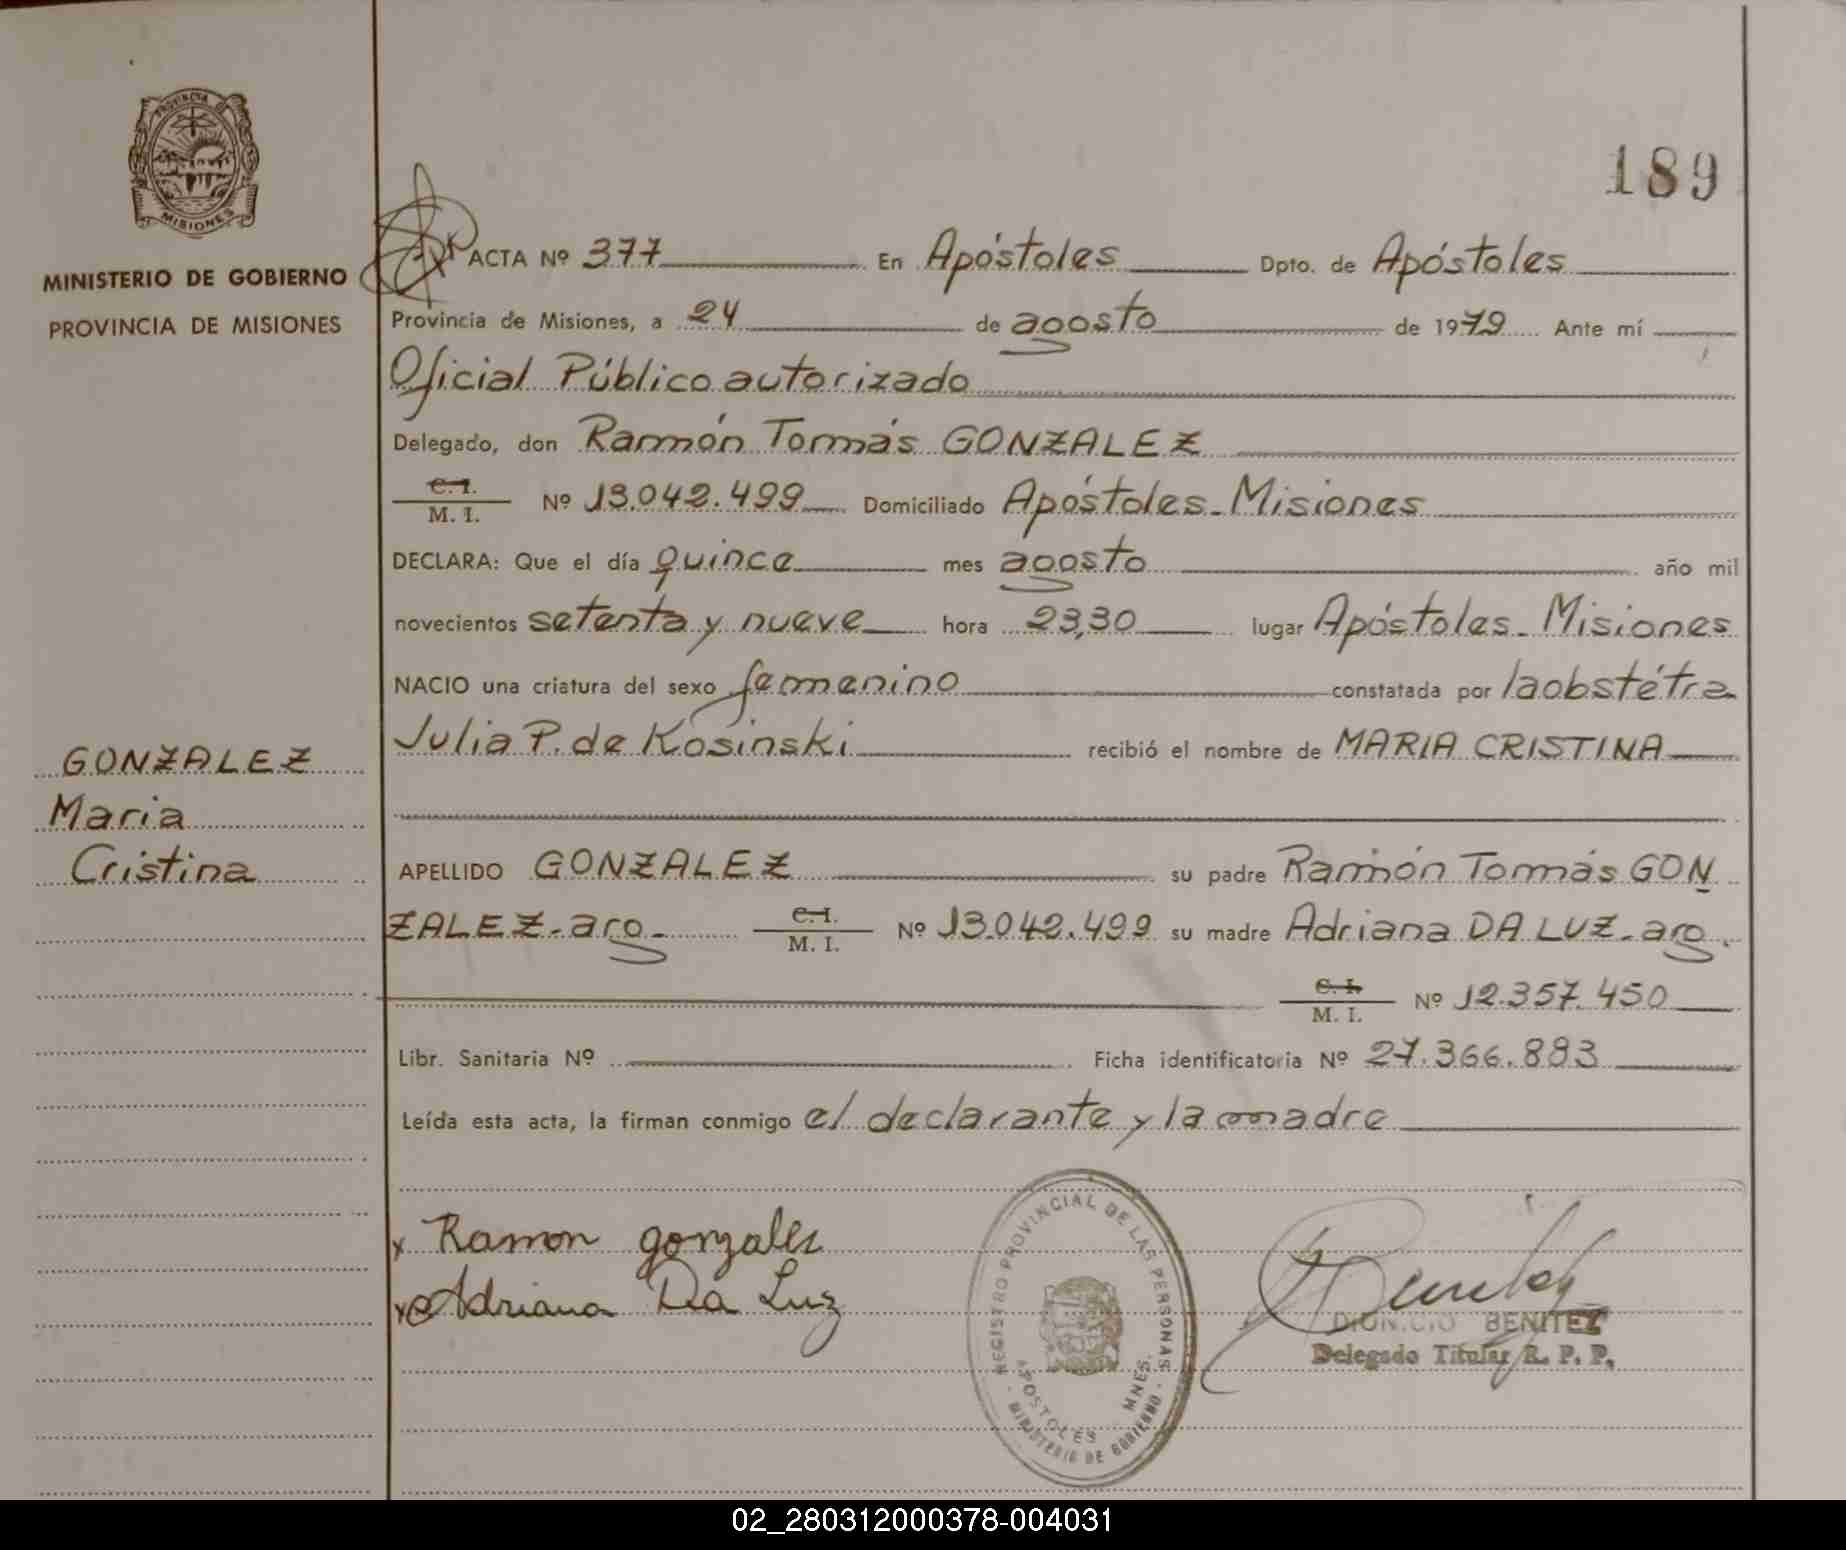 PROVINCIA DE
MISIONES
MINISTERIO DE GOBIERNO
PROVINCIA DE MISIONES
189
ACTA Nº 377 En Apóstoles Dpto. de Apóstoles
Provincia de Misiones, a 24 de agosto de 1979 Ante mí
Oficial Público autorizado
Delegado, don Ramón Tomás GONZALEZ
C. I.
M. I.
Nº 13.042.499 Domiciliado Apóstoles-Misiones
DECLARA: Que el día quince mes agosto año mil
novecientos setenta y nueve hora 23,30 lugar Apóstoles-Misiones
NACIO una criatura del sexo femenino constatada por la obstétra
Julia P. de Kosinski recibió el nombre de MARIA CRISTINA
GONZALEZ
Maria
Cristina
APELLIDO GONZALEZ su padre Ramón Tomás GON
ZALEZ-arg- C. I.
M. I.
Nº 13.042.499 su madre Adriana DA LUZ-arg.
C. I.
M. I.
Nº 12.357.450
Libr. Sanitaria Nº Ficha identificatoria Nº 27.366.883
Leída esta acta, la firman conmigo el declarante y la madre
x Ramon gonzalez
x Adriana Da Luz
REGISTRO PROVINCIAL DE LAS PERSONAS
APOSTOLES MNES.
MINISTERIO DE GOBIERNO
DIONICIO BENITEZ
Delegado Titular R. P. P.
02_280312000378-004031